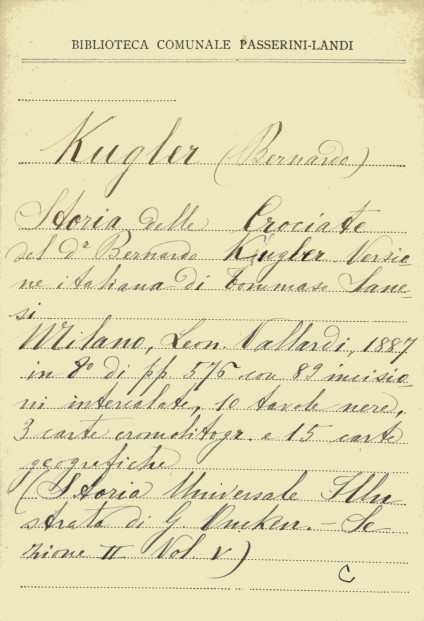 BIBLIOTECA COMUNALE PASSERINI-LANDI
Kugler (Bernardo)
Storia delle Crociate
del dr Bernardo Kugler Versio=
ne italiana di Tommaso Sane=
si
Milano, Leon. Vallardi, 1887
in 8º di pp 576 con 89 incisio=
ni intercalate, 10 tavole nere,
3 carte cromolitogr. e 15 carte
geografiche
(Storia Universale Illu
strata di G. Oncken. - Se
zione II Vol V)
C